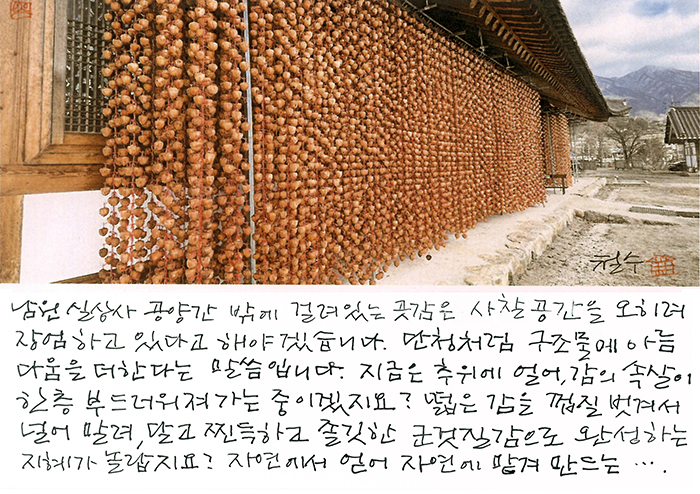 철수
남원 실상사 공양간 밖에 걸려있는 곶감은 사찰공간을 오히려
장엄하고 있다고 해야겠습니다. 단청처럼 구조물에 아름
다움을 더한다는 말씀입니다. 지금은 추위에 얼어, 감의 속살이
한층 부드러워져가는 중이겠지요? 떫은 감을 껍질 벗겨서
널어 말려, 달고 찐득하고 쫄깃한 군것질감으로 완성하는
지혜가 놀랍지요? 자연에서 얻어 자연에 맡겨 만드는 ….